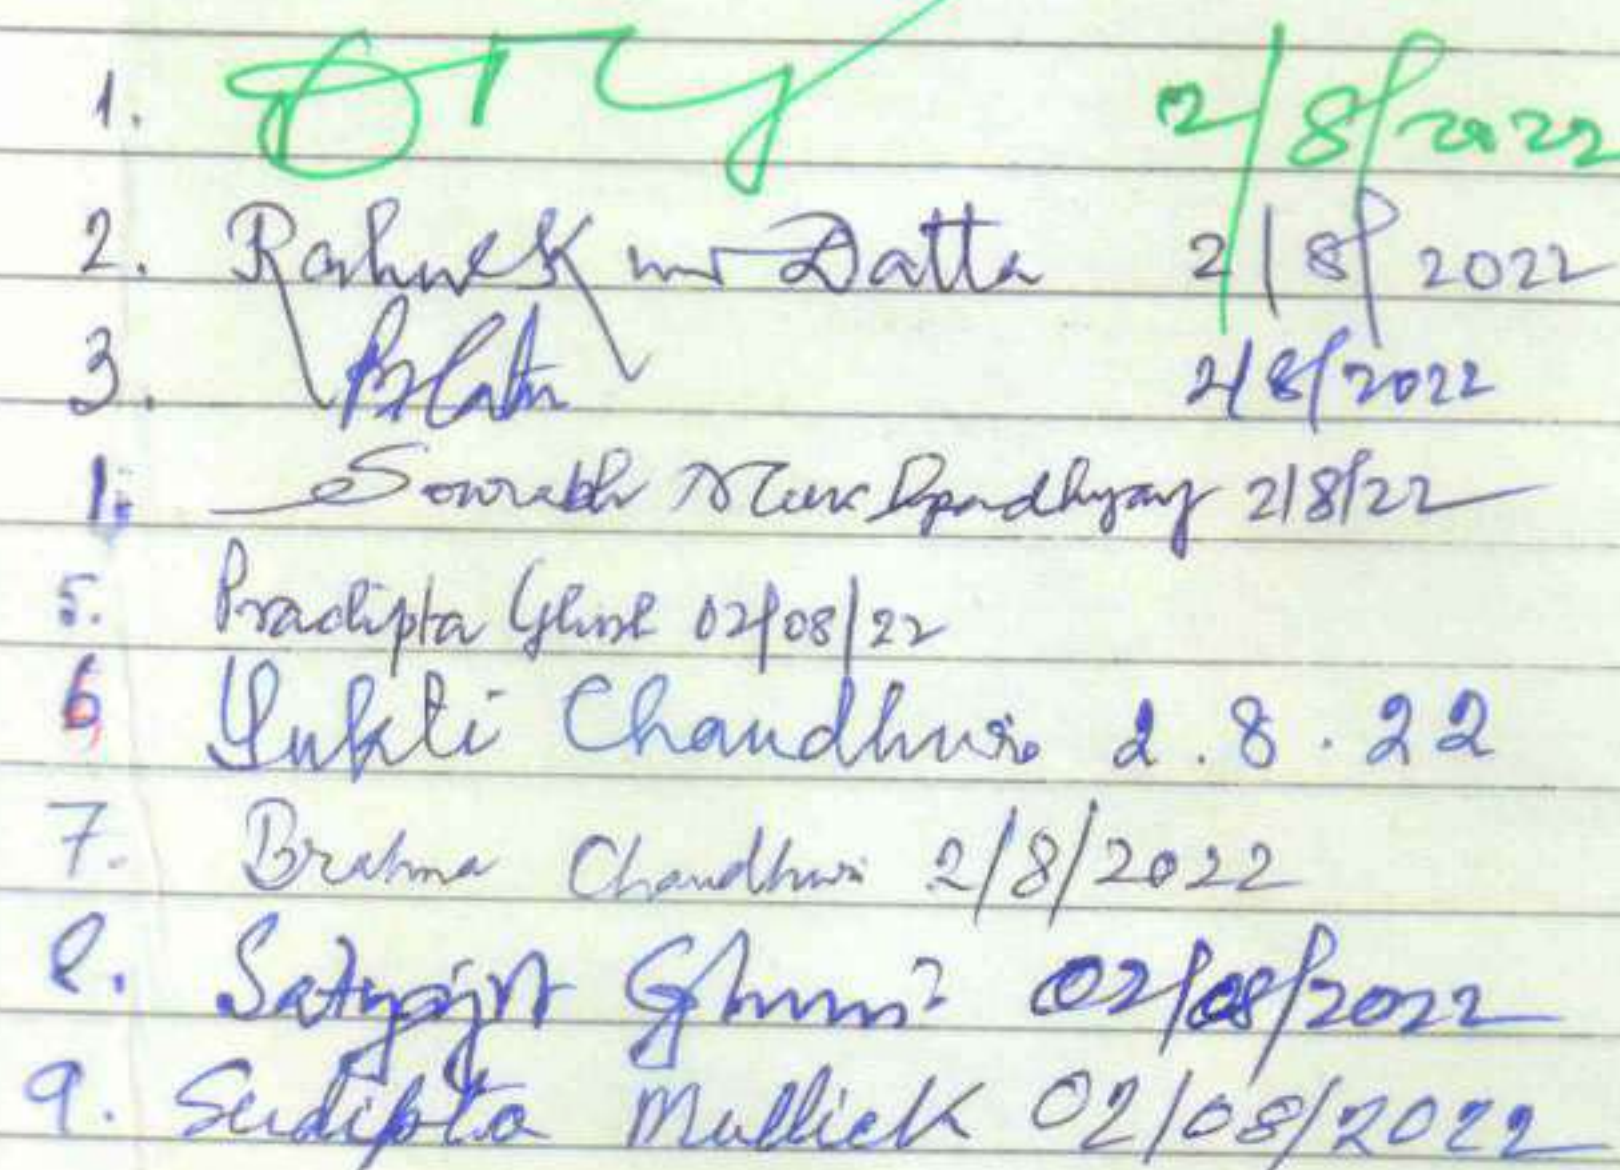 1. 2/8/2022
2. Datta 2/8/2022
3. 2/8/2022
1. Sourabh 2/8/22
5. Pradipta Ghosh 02/08/22
6 Sukti Chaudhuri 2.8.22
7. Brahma Chaudhuri 2/8/2022
8. Satyajit 02/08/2022
9. Sudipta Mullick 02/08/2022